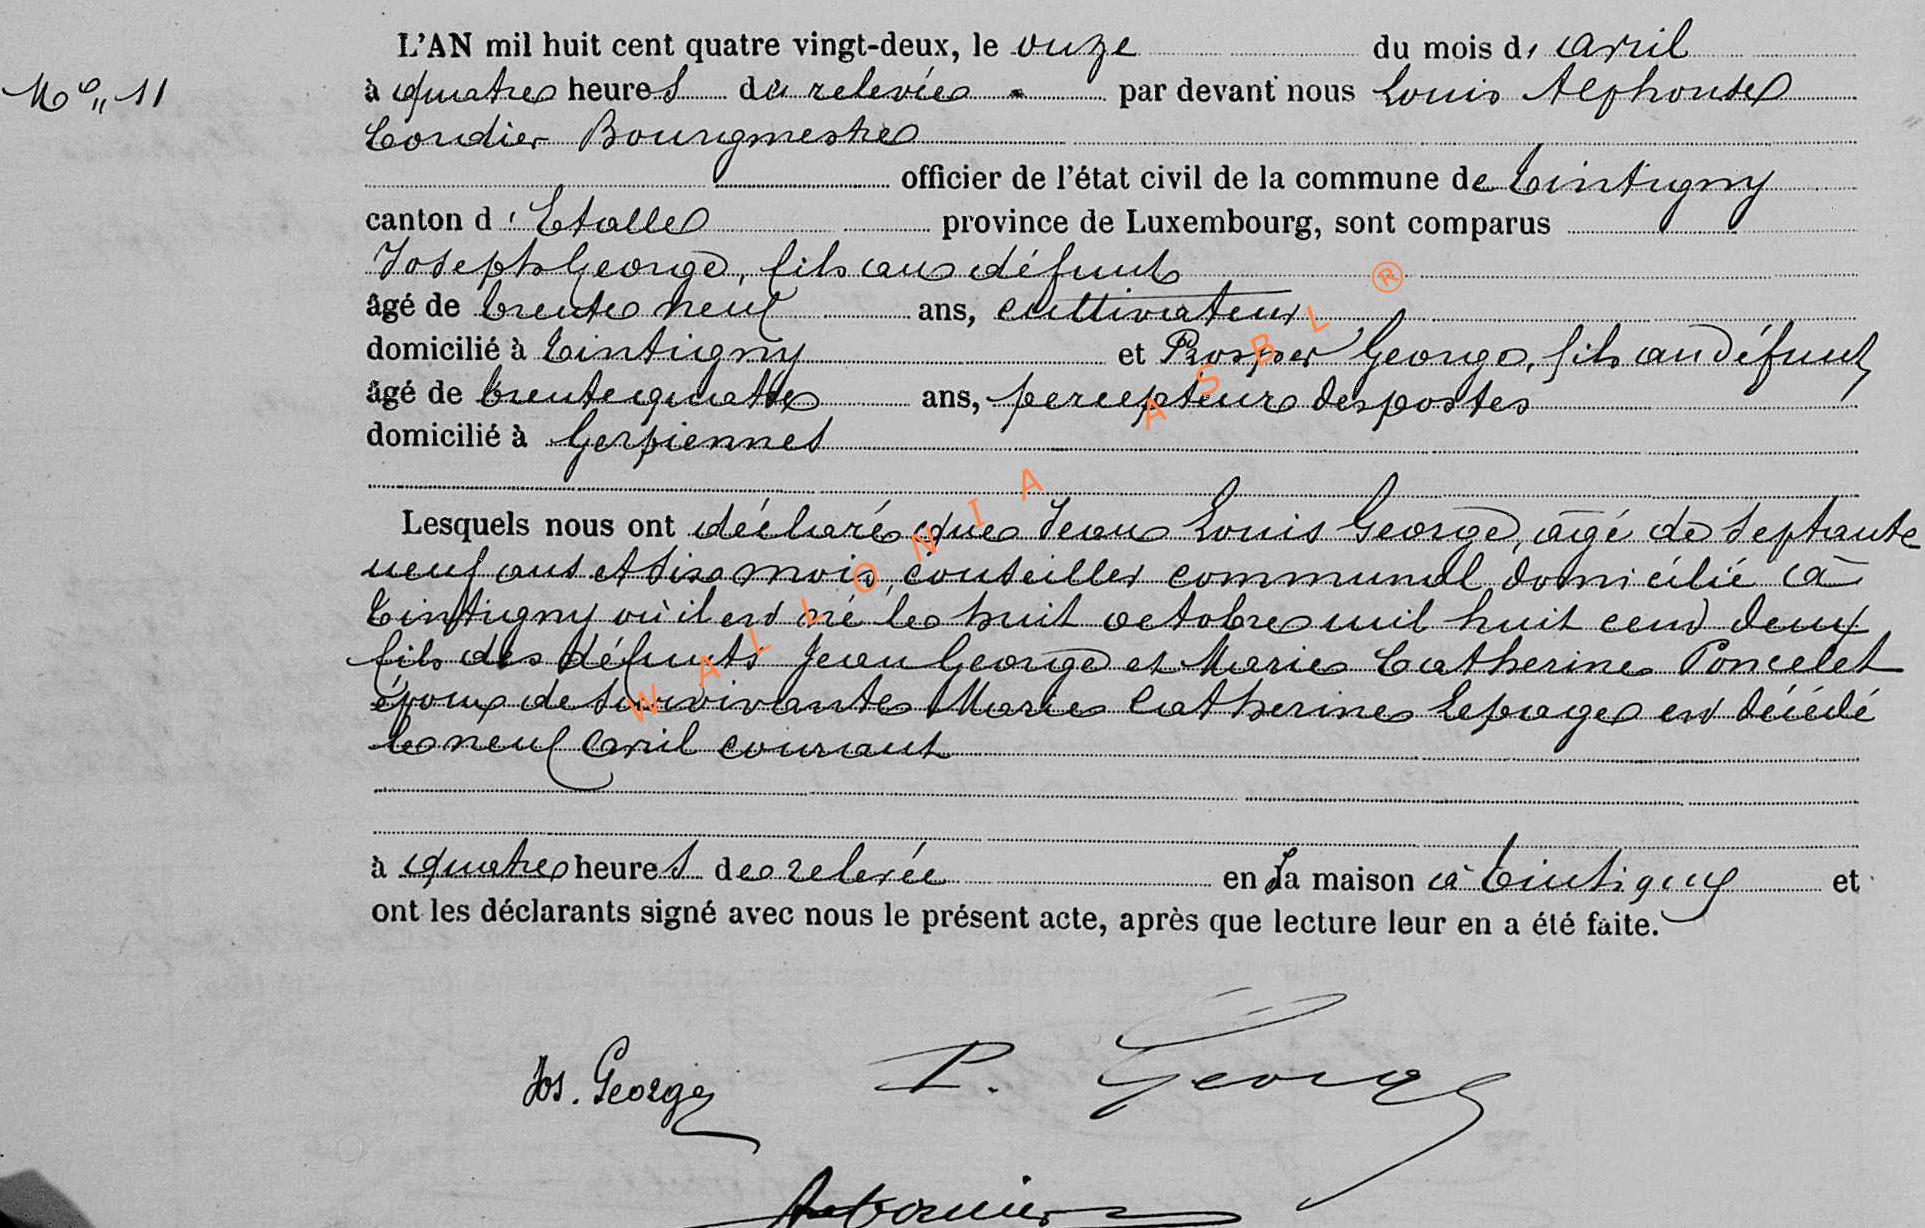 L'AN mil huit cent quatre vingt-deux, le onze du mois d' avril
N° 11
à quatre heures de relevée par devant nous Louis Alphonse
Cordier Bourgmestre
officier de l'état civil de la commune de Tintigny
canton d' Etalle province de Luxembourg, sont comparus
Joseph George, fils au défunt
âgé de trente neuf ans, cultivateur
domicilié à Tintigny et Prosper George, fils au défunt
âgé de trente quatre ans, percepteur des postes
domicilié à Gerpiennes
Lesquels nous ont déclaré que Jean Louis George, âgé de septante
neuf ans et six mois, conseiller communal domicilié à
Tintigny où il est né le huit octobre mil huit cent deux
fils des défunts Jean George et Marie Catherine Poncelet
époux de survivante Marie Catherine Lepage est décédé
le neuf avril courant
à quatre heures de relevée en sa maison à Tintigny et
ont les déclarants signé avec nous le présent acte, après que lecture leur en a été faite.
Jos. George P. George
WALLONIA ASBL ®